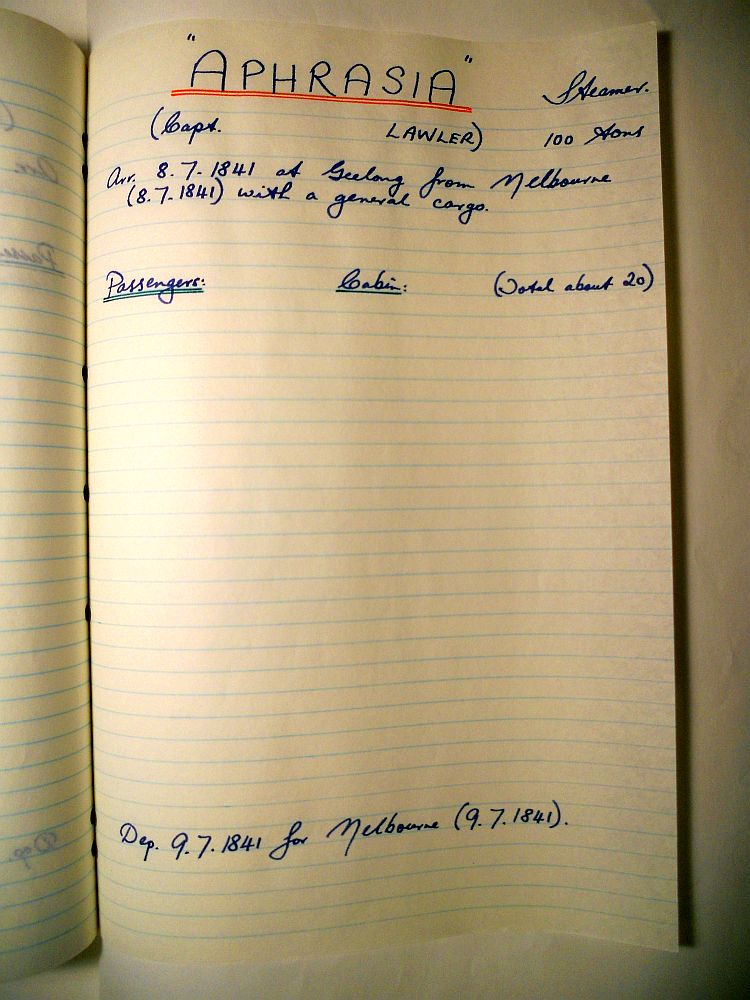 "APHRASIA" Steamer.
(Capt. LAWLER) 100 tons
Arr. 8.7.1841 at Geelong from Melbourne
(8.7.1841) with a general cargo.
Passengers: Cabin: (Total about 20)
Dep. 9.7.1841 for Melbourne (9.7.1841).